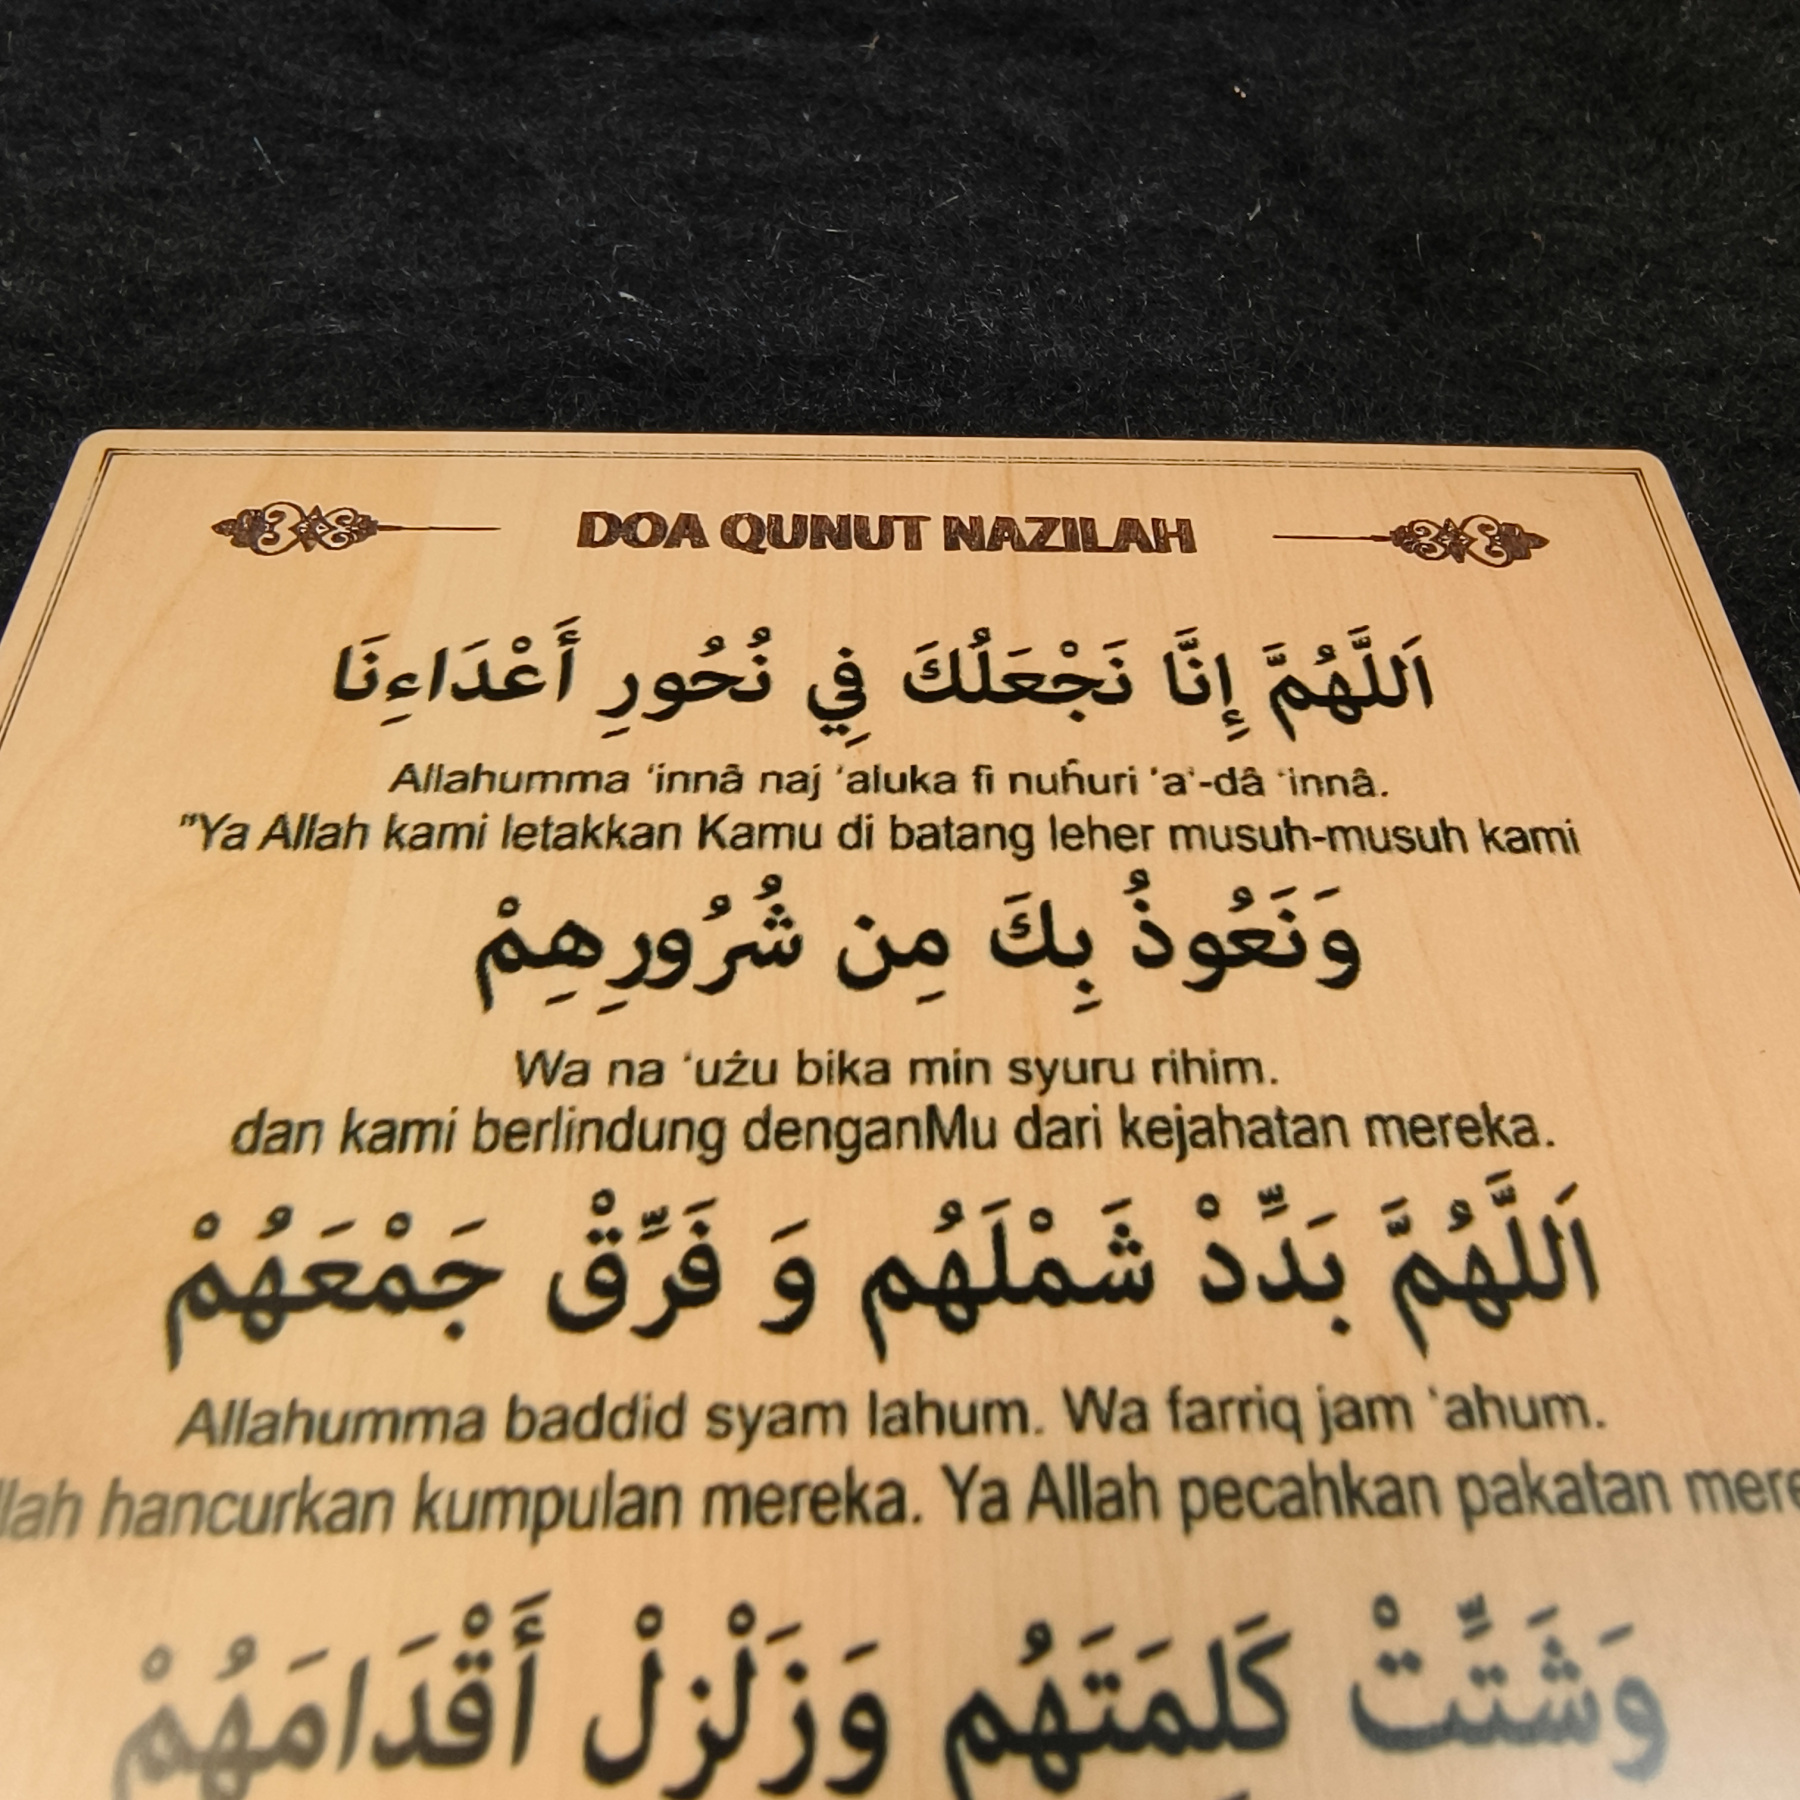 DOA QUNUT NAZILAH
اَللَّهُمَّ إِنَّا نَجْعَلُكَ فِي نُحُورِ أَعْدَاءِنَا
Allahumma ‘innâ naj ‘aluka fi nuĥuri ‘a‘-dâ ‘innâ.
"Ya Allah kami letakkan Kamu di batang leher musuh-musuh kami
وَنَعُوذُ بِكَ مِن شُرُورِهِمْ
Wa na ‘użu bika min syuru rihim.
dan kami berlindung denganMu dari kejahatan mereka.
اَللَّهُمَّ بَدِّدْ شَمْلَهُم وَ فَرِّقْ جَمْعَهُمْ
Allahumma baddid syam lahum. Wa farriq jam ‘ahum.
hancurkan kumpulan mereka. Ya Allah pecahkan pakatan
وَشَتِّتْ كَلِمَتَهُم وَزَلْزِلْ أَقْدَامَهُمْ